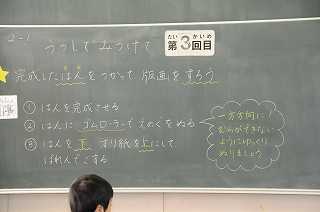 うつして みつけて
たい かいめ
第3回目
完成した はんを つかって 版画を するう
① はんを 完成させる
② はんに ゴムローラーで えのぐを ぬる
③ はんを 下 すり紙を 上にして
ばれんで こする
一方方向に!
むらができない
ようにゆっくり
ぬりましょう